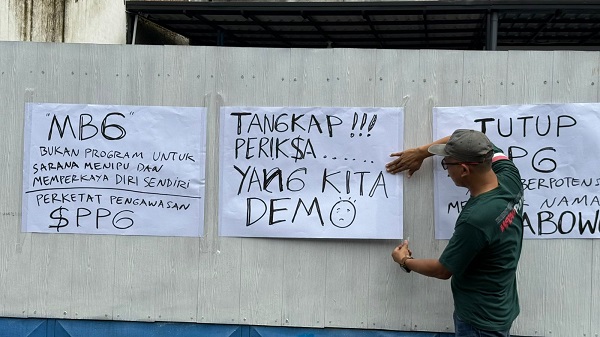 "MBG"
BUKAN PROGRAM UNTUK
SARANA MENIPU DAN
MEMPERKAYA DIRI SENDIRI
PERKETAT PENGAWASAN
$PPG
TANGKAP !!!
PERIK$A......
YANG KITA
DEMO
TUTUP
PG
BERPOTENS
NAMA
ABOW